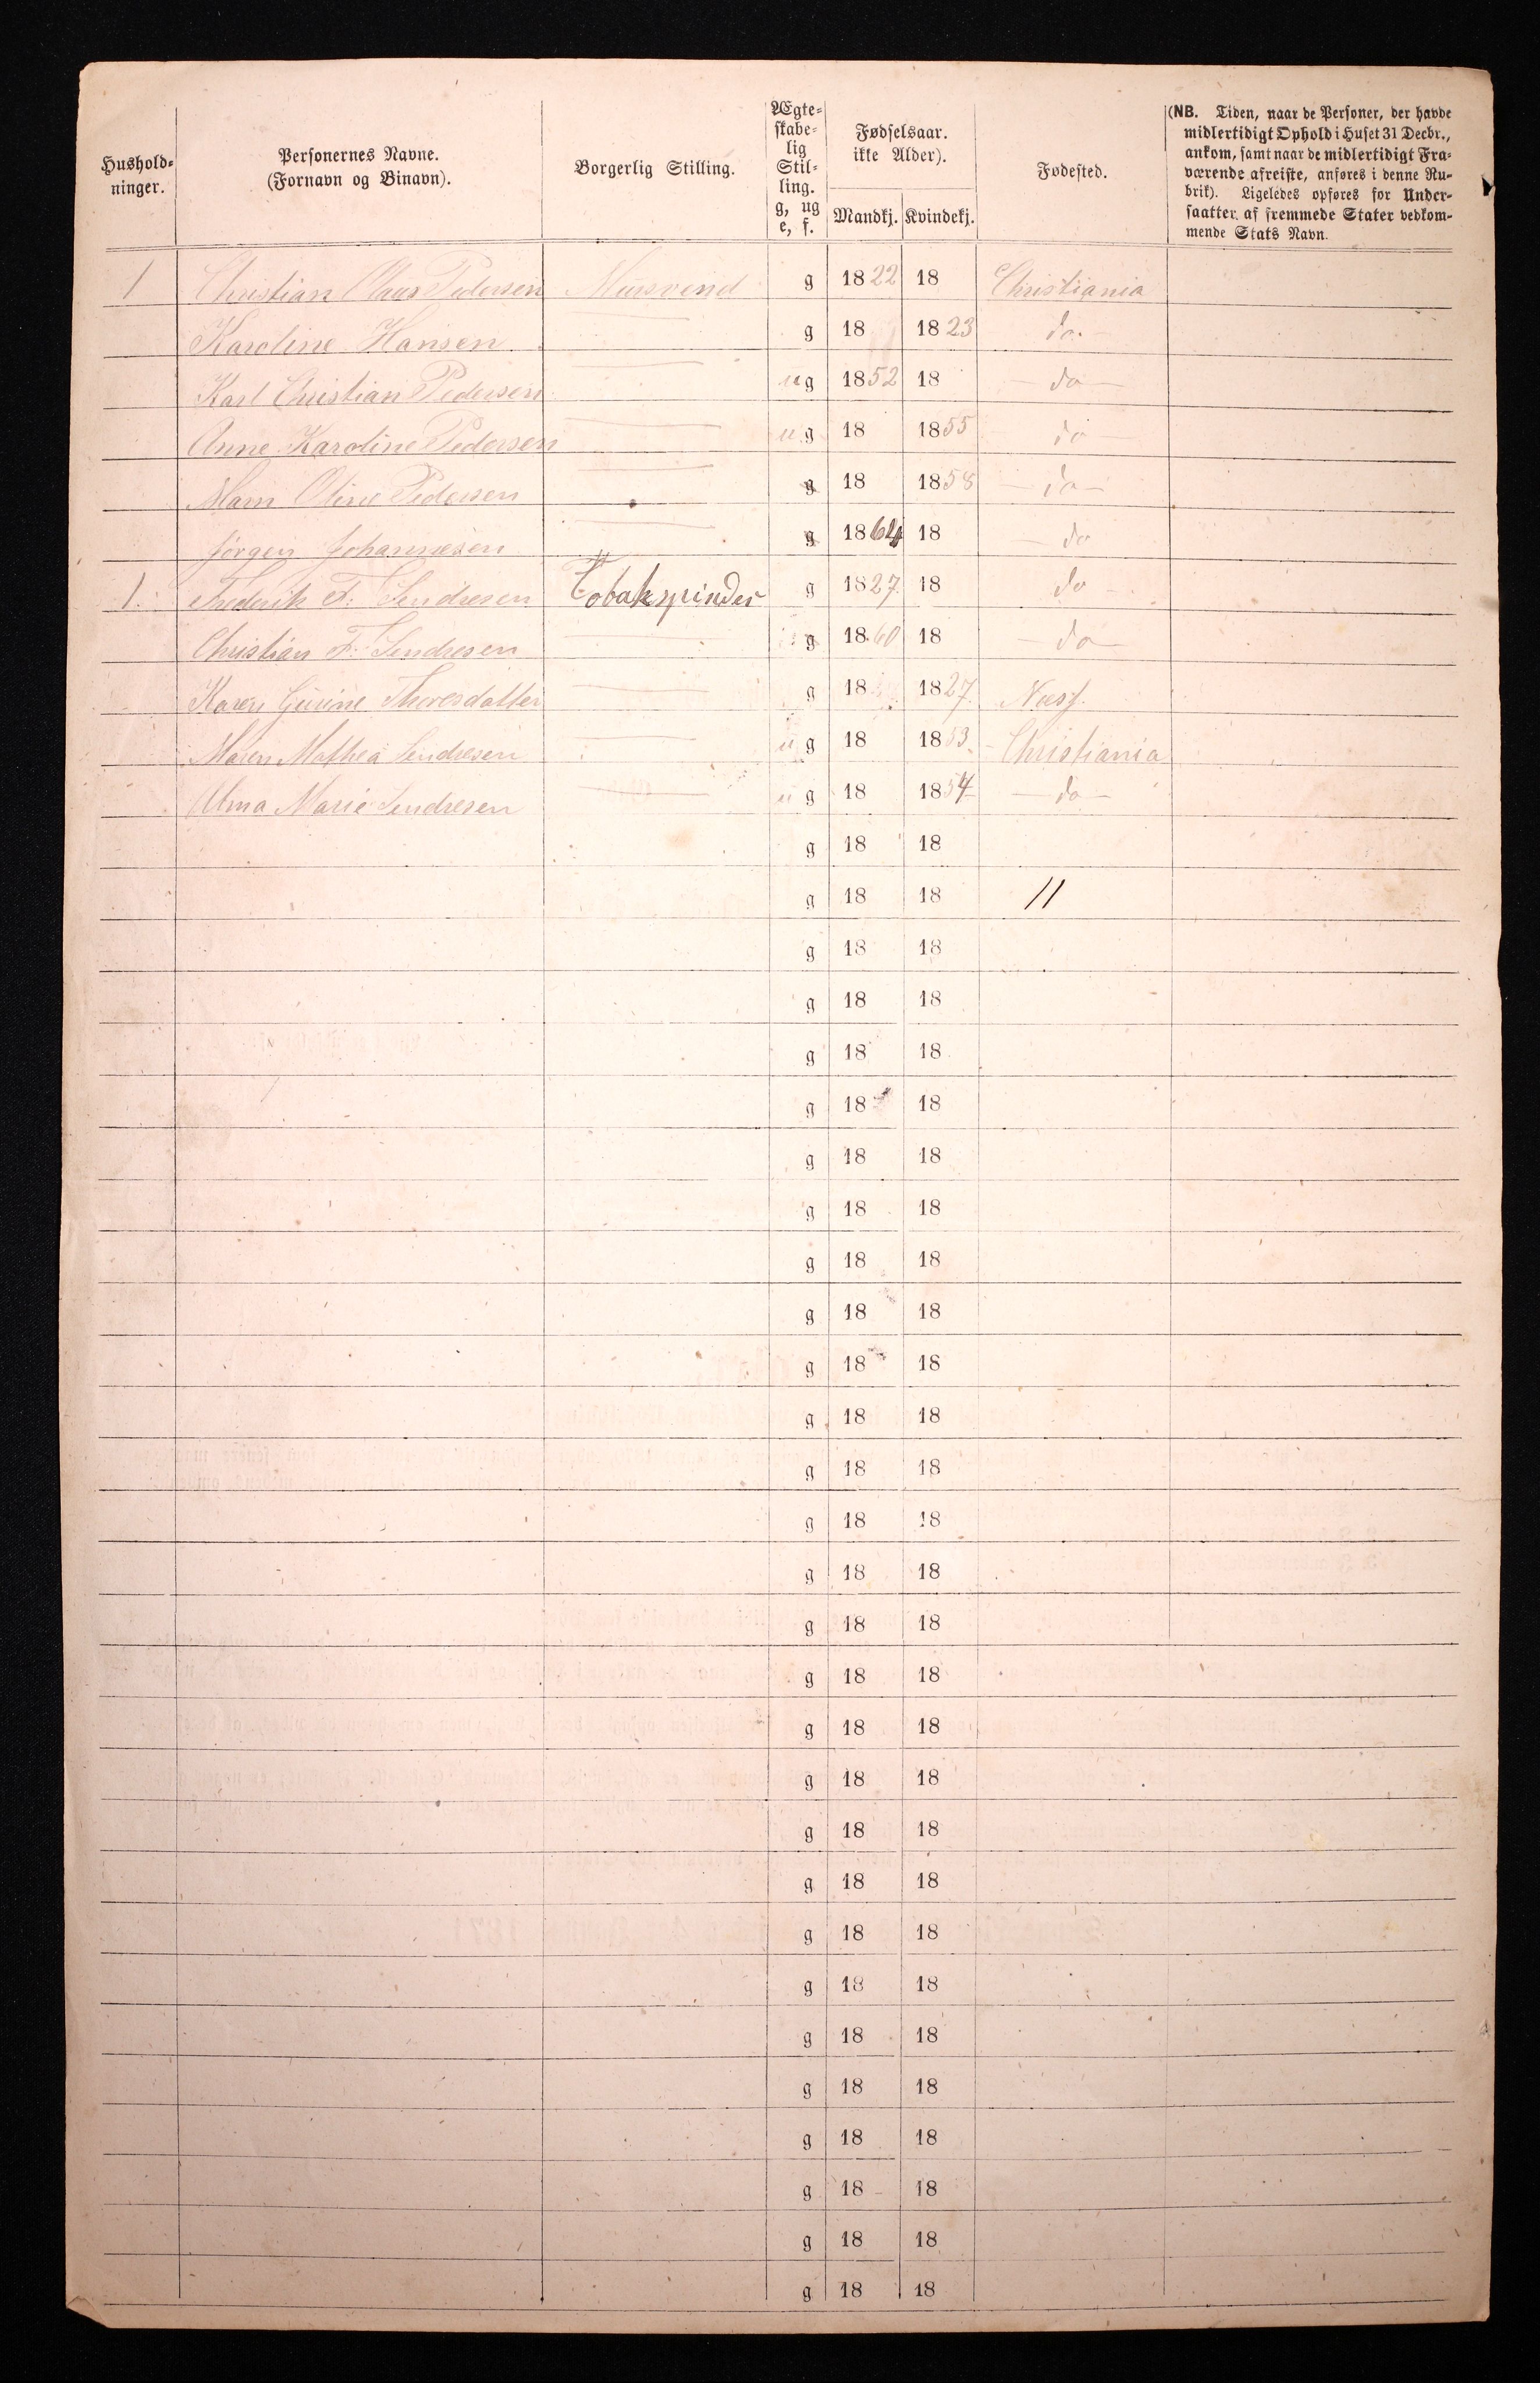 Hushold-
ninger.
Personernes Navne.
(Fornavn og Binavn).
Borgerlig Stilling.
Ægte-
skabe-
lig
Stil-
ling.
g, ug
e, f.
Fødselsaar.
ikke Alder).
Mandkj. Kvindekj.
Fødested.
(NB. Tiden, naar de Personer, der havde
midlertidigt Ophold i Huset 31 Decbr.,
ankom, samt naar de midlertidigt Fra-
værende afreiste, anføres i denne Ru-
brik). Ligeledes opføres for Under-
saatter af fremmede Stater vedkom-
mende Stats Navn.
1 Christian Olaus Pedersen Mursvend g 1822 18 Christiania
Karoline Hansen g 18 1823 do.
Karl Christian Pedersen ug 1852 18 do
Anne Karoline Pedersen ug 18 1855 do
Oline Pedersen g 18 1858 do
Jørgen Johannesen g 1864 18 do
1. Frederik F. Sendresen Tobakspinder g 1827 18 do
Christian F. Sendresen g 1860 18 do
Karen Thoresdatter g 18 1827 Næss.
Maren Mathea Sendresen ug 18 1853 Christiania
Marie Sendresen ug 18 1854 do
g 18 18
g 18 18 11
g 18 18
g 18 18
g 18 18
g 18 18
g 18 18
g 18 18
g 18 18
g 18 18
g 18 18
g 18 18
g 18 18
g 18 18
g 18 18
g 18 18
g 18 18
g 18 18
g 18 18
g 18 18
g 18 18
g 18 18
g 18 18
g 18 18
g 18 18
g 18 18
g 18 18
g 18 18
g 18 18